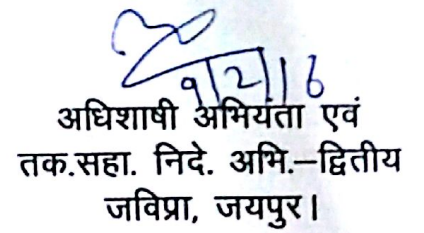 9/2/16
अधिशाषी अभियंता एवं
तक.सहा. निदे. अभि.–द्वितीय
जविप्रा, जयपुर।